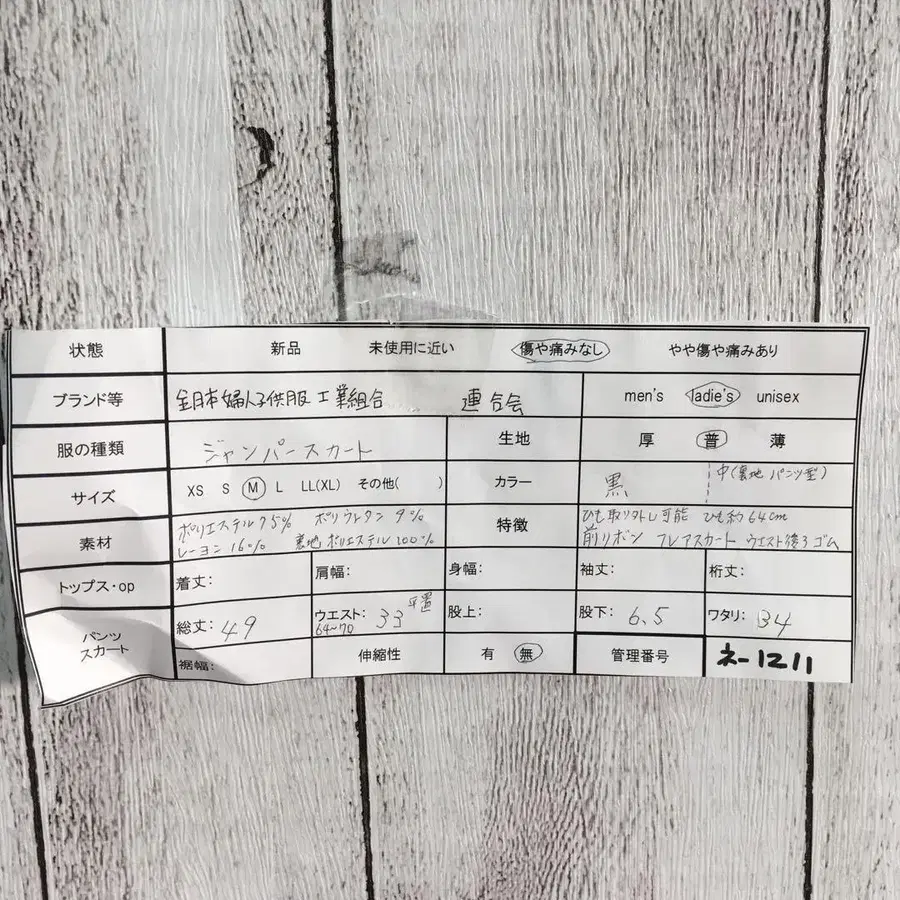 状態 新品 未使用に近い 傷や痛みなし やや傷や痛みあり
ブランド等 全日本婦人子供服工業組合 連合会 men's ladie's unisex
服の種類 ジャンパースカート 生地 厚 普 薄
サイズ XS S M L LL(XL) その他( ) カラー 黒 中(裏地 パンツ型)
素材 ポリエステル75% ポリウレタン9% 特徴 ひも取り外し可能 ひも約64cm
レーヨン16% 裏地 ポリエステル100% 前リボン フレアスカート ウエスト後ろゴム
トップス・op 着丈: 肩幅: 身幅: 袖丈: 裄丈:
パンツ スカート 総丈: 49 ウエスト: 64~70 33 平置 股上: 股下: 6.5 ワタリ: 34
裾幅: 伸縮性 有 無 管理番号 ネ-1211